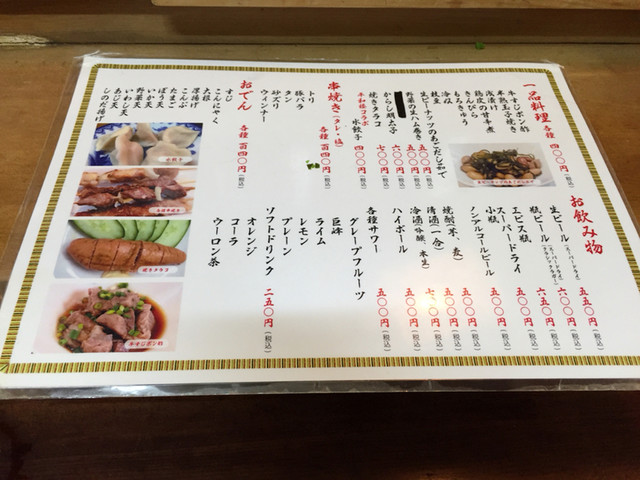 一品料理 各種 四〇〇円(税込)
牛すじポン酢
本熟玉子焼き
鶏皮の甘辛煮
きんぴら
もろきゅう
冷奴
枝豆
生ピーナッツのあごだし和で 五五〇円(税込)
野菜の生ハム巻き 五〇〇円(税込)
からし明太子 六〇〇円(税込)
焼きタラコ 七〇〇円(税込)
水餃子 四〇〇円(税込)
串焼き(タレ・塩) 各種 百四〇円(税込)
トリ
豚バラ
タン
砂ズリ
ウィンナー
おでん 各種 百四〇円(税込)
すじ
こんにゃく
大根
厚揚げ
こんぶ
たまご
ぼう天
いか天
野菜天
いわし天
あじ天
しのだ揚げ
お飲み物
生ビール 五五〇円(税込)
瓶ビール 六五〇円(税込)
エビス瓶 六五〇円(税込)
スーパードライ小瓶 五〇〇円(税込)
ノンアルコールビール 五〇〇円(税込)
焼酎(米、麦) 五〇〇円(税込)
清酒(一合) 五〇〇円(税込)
ハイボール 五〇〇円(税込)
各種サワー 五〇〇円(税込)
グレープフルーツ
巨峰
ライム
レモン
プレーン
ソフトドリンク 二五〇円(税込)
オレンジ
コーラ
ウーロン茶
水餃子
焼きタラコ
牛すじポン酢